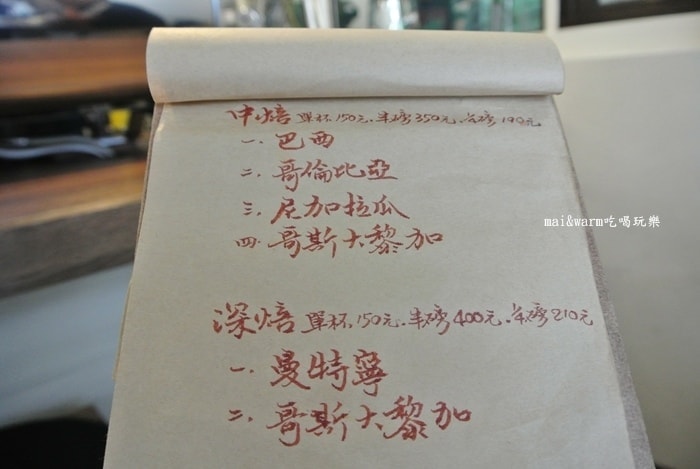 中焙 單杯150元、半磅350元、¼磅190元
一、巴西
二、哥倫比亞
三、尼加拉瓜
四、哥斯大黎加
mai&warm吃喝玩樂
深焙 單杯150元、半磅400元、¼磅210元
一、曼特寧
二、哥斯大黎加